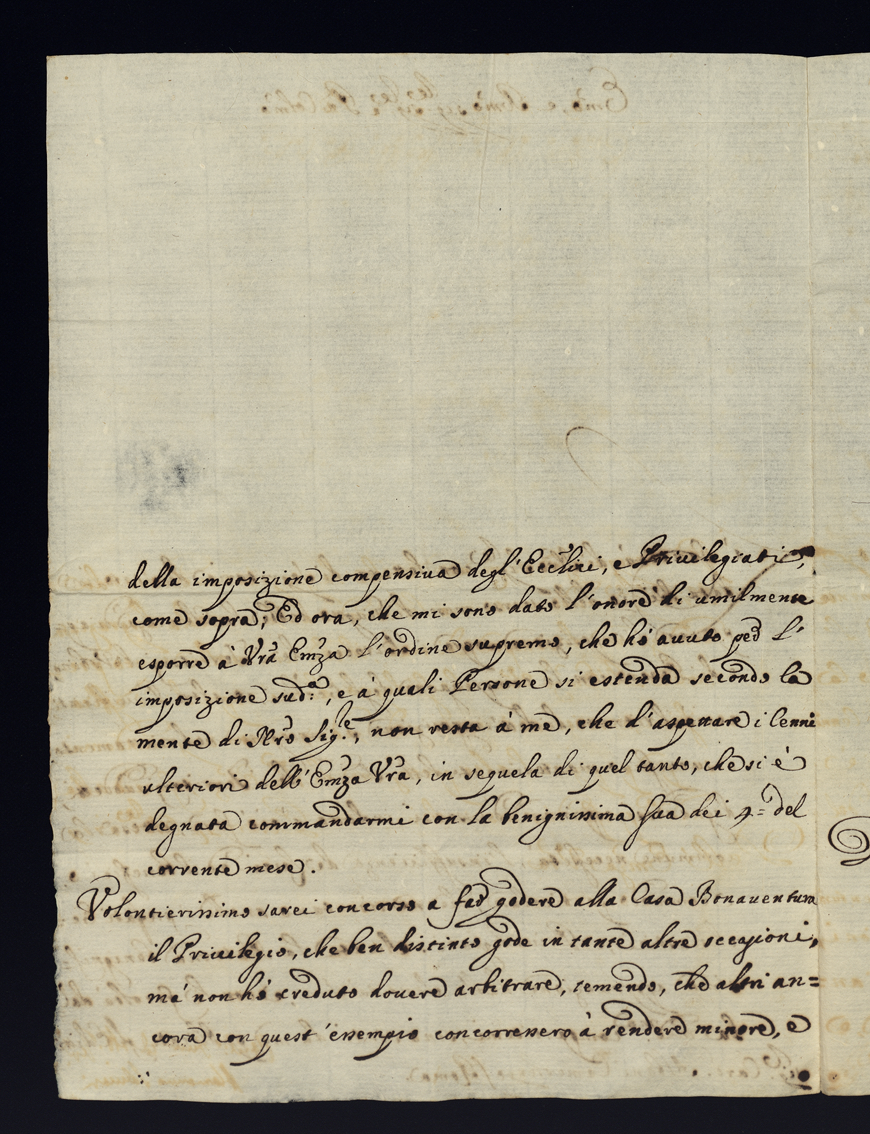 della imposizione compensiva degl' Eccl'ici, e Privilegiati,
come sopra; Ed ora, che mi sono dato l'onore di umilmente
esporre à Vrã Emza l'ordine supremo, che hò avuto per l'
imposizione sud.ª, e à quali Persone si estenda secondo la
mente di Nrõ Sig.re, non resta à me, che d'aspettare i Cenni
ulteriori dell'Emza Vrã, in sequela di quel tanto, che si è
degnata commandarmi con la benignissima sua dei 4.= del
corrente mese.
Volontierissimo sarei concorso a far godere alla Casa Bonaventura
il Privilegio, che ben distinto gode in tante altre occasioni,
mà non hò creduto dovere arbitrare, temendo, che altri an=
cora con quest'essempio concorressero à rendere minore, e